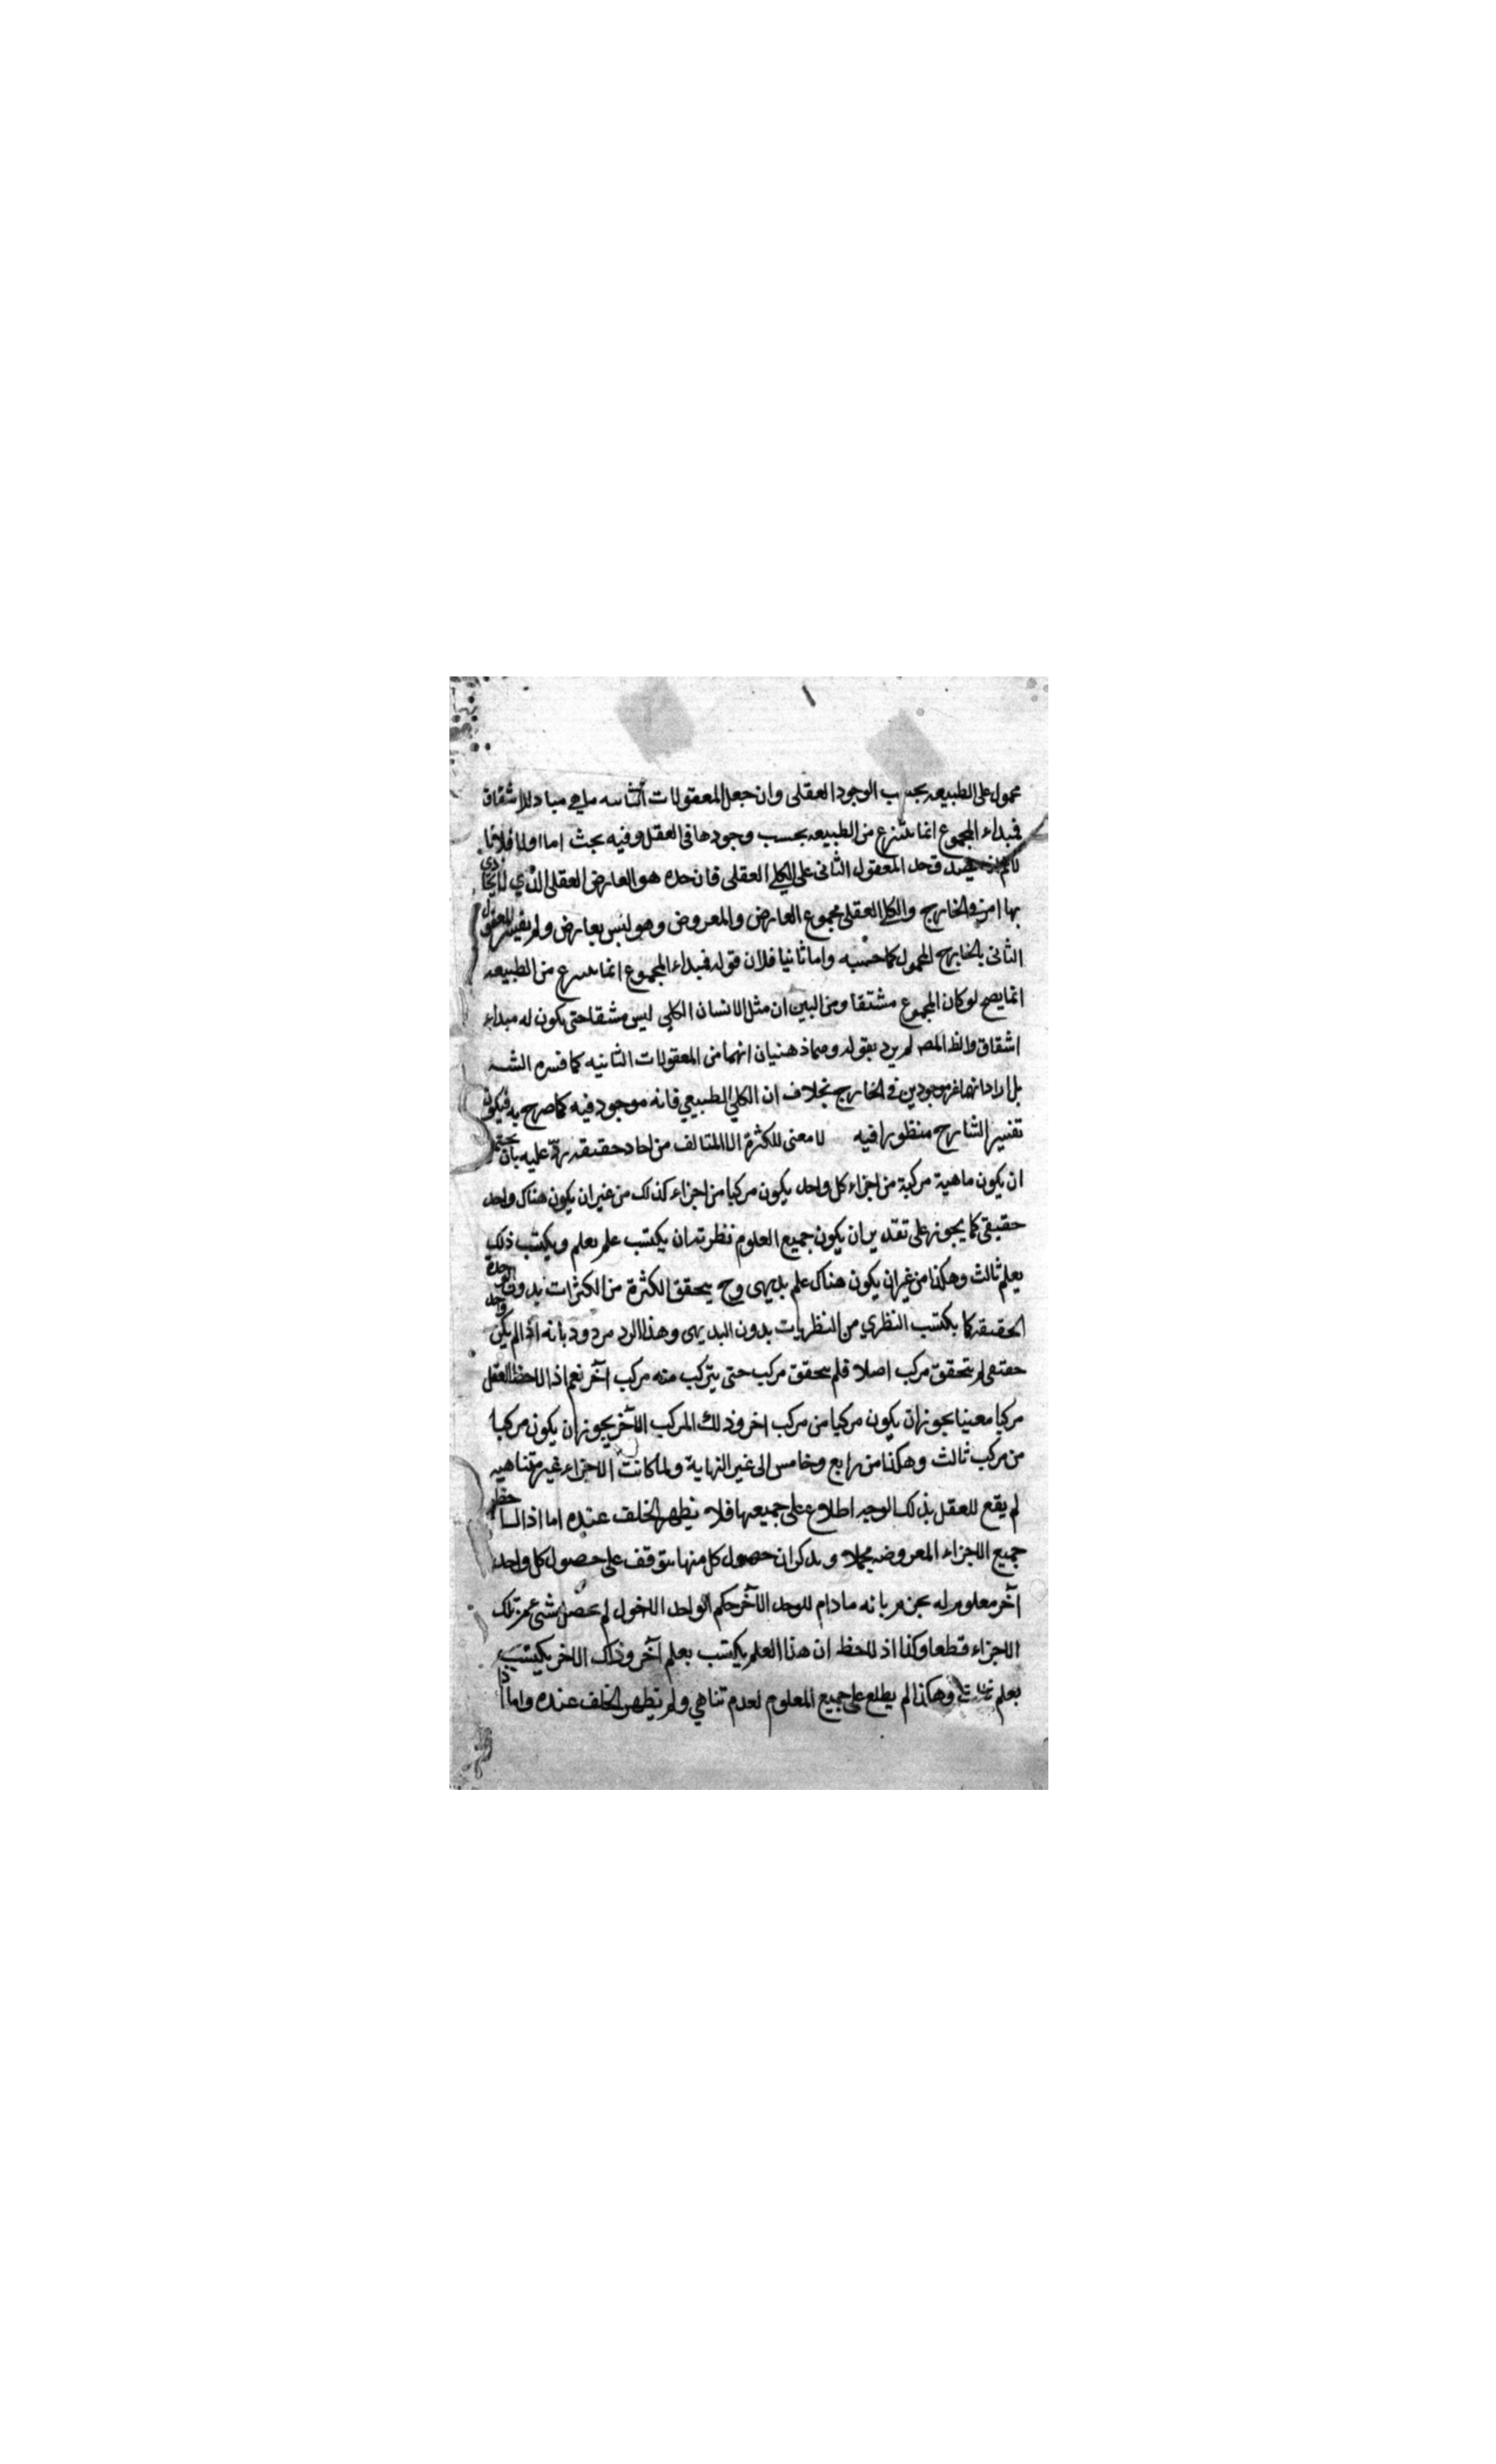 محمول على الطبيعه بحسب الوجود العقلى وان جعل المعقولات الثانيه ما هى مباد للاشقاق
فمبداء المجموع انما ينتزع من الطبيعه بحسب وجودها فى العقل وفيه بحث اما اولا فلانا
المعقول الثانى على الكلي العقلى فان حده هو العارض العقلى الذي لا يحاذي
بها امر فى الخارج والكلى العقلى مجموع العارض والمعروض وهو ليس بعارض ولم يفسر المعقول
الثانى بالخارج المحمول كما حسبه واما ثانيا فلان قوله فمبداء المجموع انما ينتزع من الطبيعه
انما يصح لو كان المجموع مشتقا ومن البين ان مثل الانسان الكلي ليس مشقا حتى يكون له مبداء
اشقاق والظ المص لم يرد بقوله وهما ذهنيان انهما من المعقولات الثانيه كما فسره الشـ
بل اراد انهما غير موجودين فى الخارج بخلاف ان الكلي الطبيعي فانه موجود فيه كما صرح به فيكون
تفسير الشارح منظورا فيه لا معنى للكثرة الا المتالف من احاد حقيقه ردّ عليه بان يحتمل
ان يكون ماهية مركبة من اجزاء كل واحد يكون مركبا من اجزاء كذلك من غير ان يكون هناك واحد
حقيقى كما يجوز على تقدير ان يكون جميع العلوم نظريه ان يكتسب علم بعلم ويكتسب ذلك
بعلم ثالث وهكذا من غير ان يكون هناك علم بديهى وح يتحقق الكثرة من الكثرات بدون الوحدة
الحقيقه كما يكتسب النظري من النظريات بدون البديهى وهذا الرد مردود بانه اذا لم يكن واحد
حقيقى لم يتحقق مركب اصلا فلم يتحقق مركب حتى يتركب منه مركب آخر نعم اذا لاحظ العقل
مركبا معينا يجوز ان يكون مركبا من مركب اخر وذلك المركب الآخر يجوز ان يكون مركبا
من مركب ثالث وهكذا من رابع وخامس الى غير النهاية ولما كانت الاجزاء غير متناهيه
لم يقع للعقل بذلك الوجه اطلاع على جميعها فلا يظهر الخلف عنده اما اذا لاحظ
جميع الاجزاء المعروضه مجملا ويدكر ان حصول كل منها يتوقف على حصول كل واحد
آخر معلوم له يجزم بانه ما دام للوحد الآخر حكم الواحد الاول لم يحصل شئ من تلك
الاجزاء قطعا وكذا اذ لاحظ ان هذا العلم يكتسب بعلم آخر وذلك الاخر يكتسب
بعلم ثالث وهكذا لم يطلع على جميع المعلوم لعدم تناهي ولم يظهر الخلف عنده واما اذا